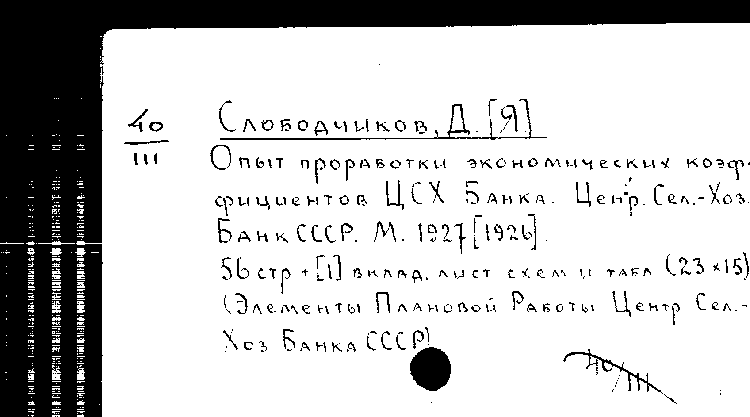 40
III
Слободчиков, Д. [Я]
Опыт проработки экономических коэф-
фициентов ЦСХ Банка. Центр. Сел.-Хоз.
Банк СССР. М. 1927 [1926].
56 стр + [1] вклад. лист схем и табл (23×15)
(Элементы Плановой Работы Центр Сел.-
Хоз Банка СССР)
40/III